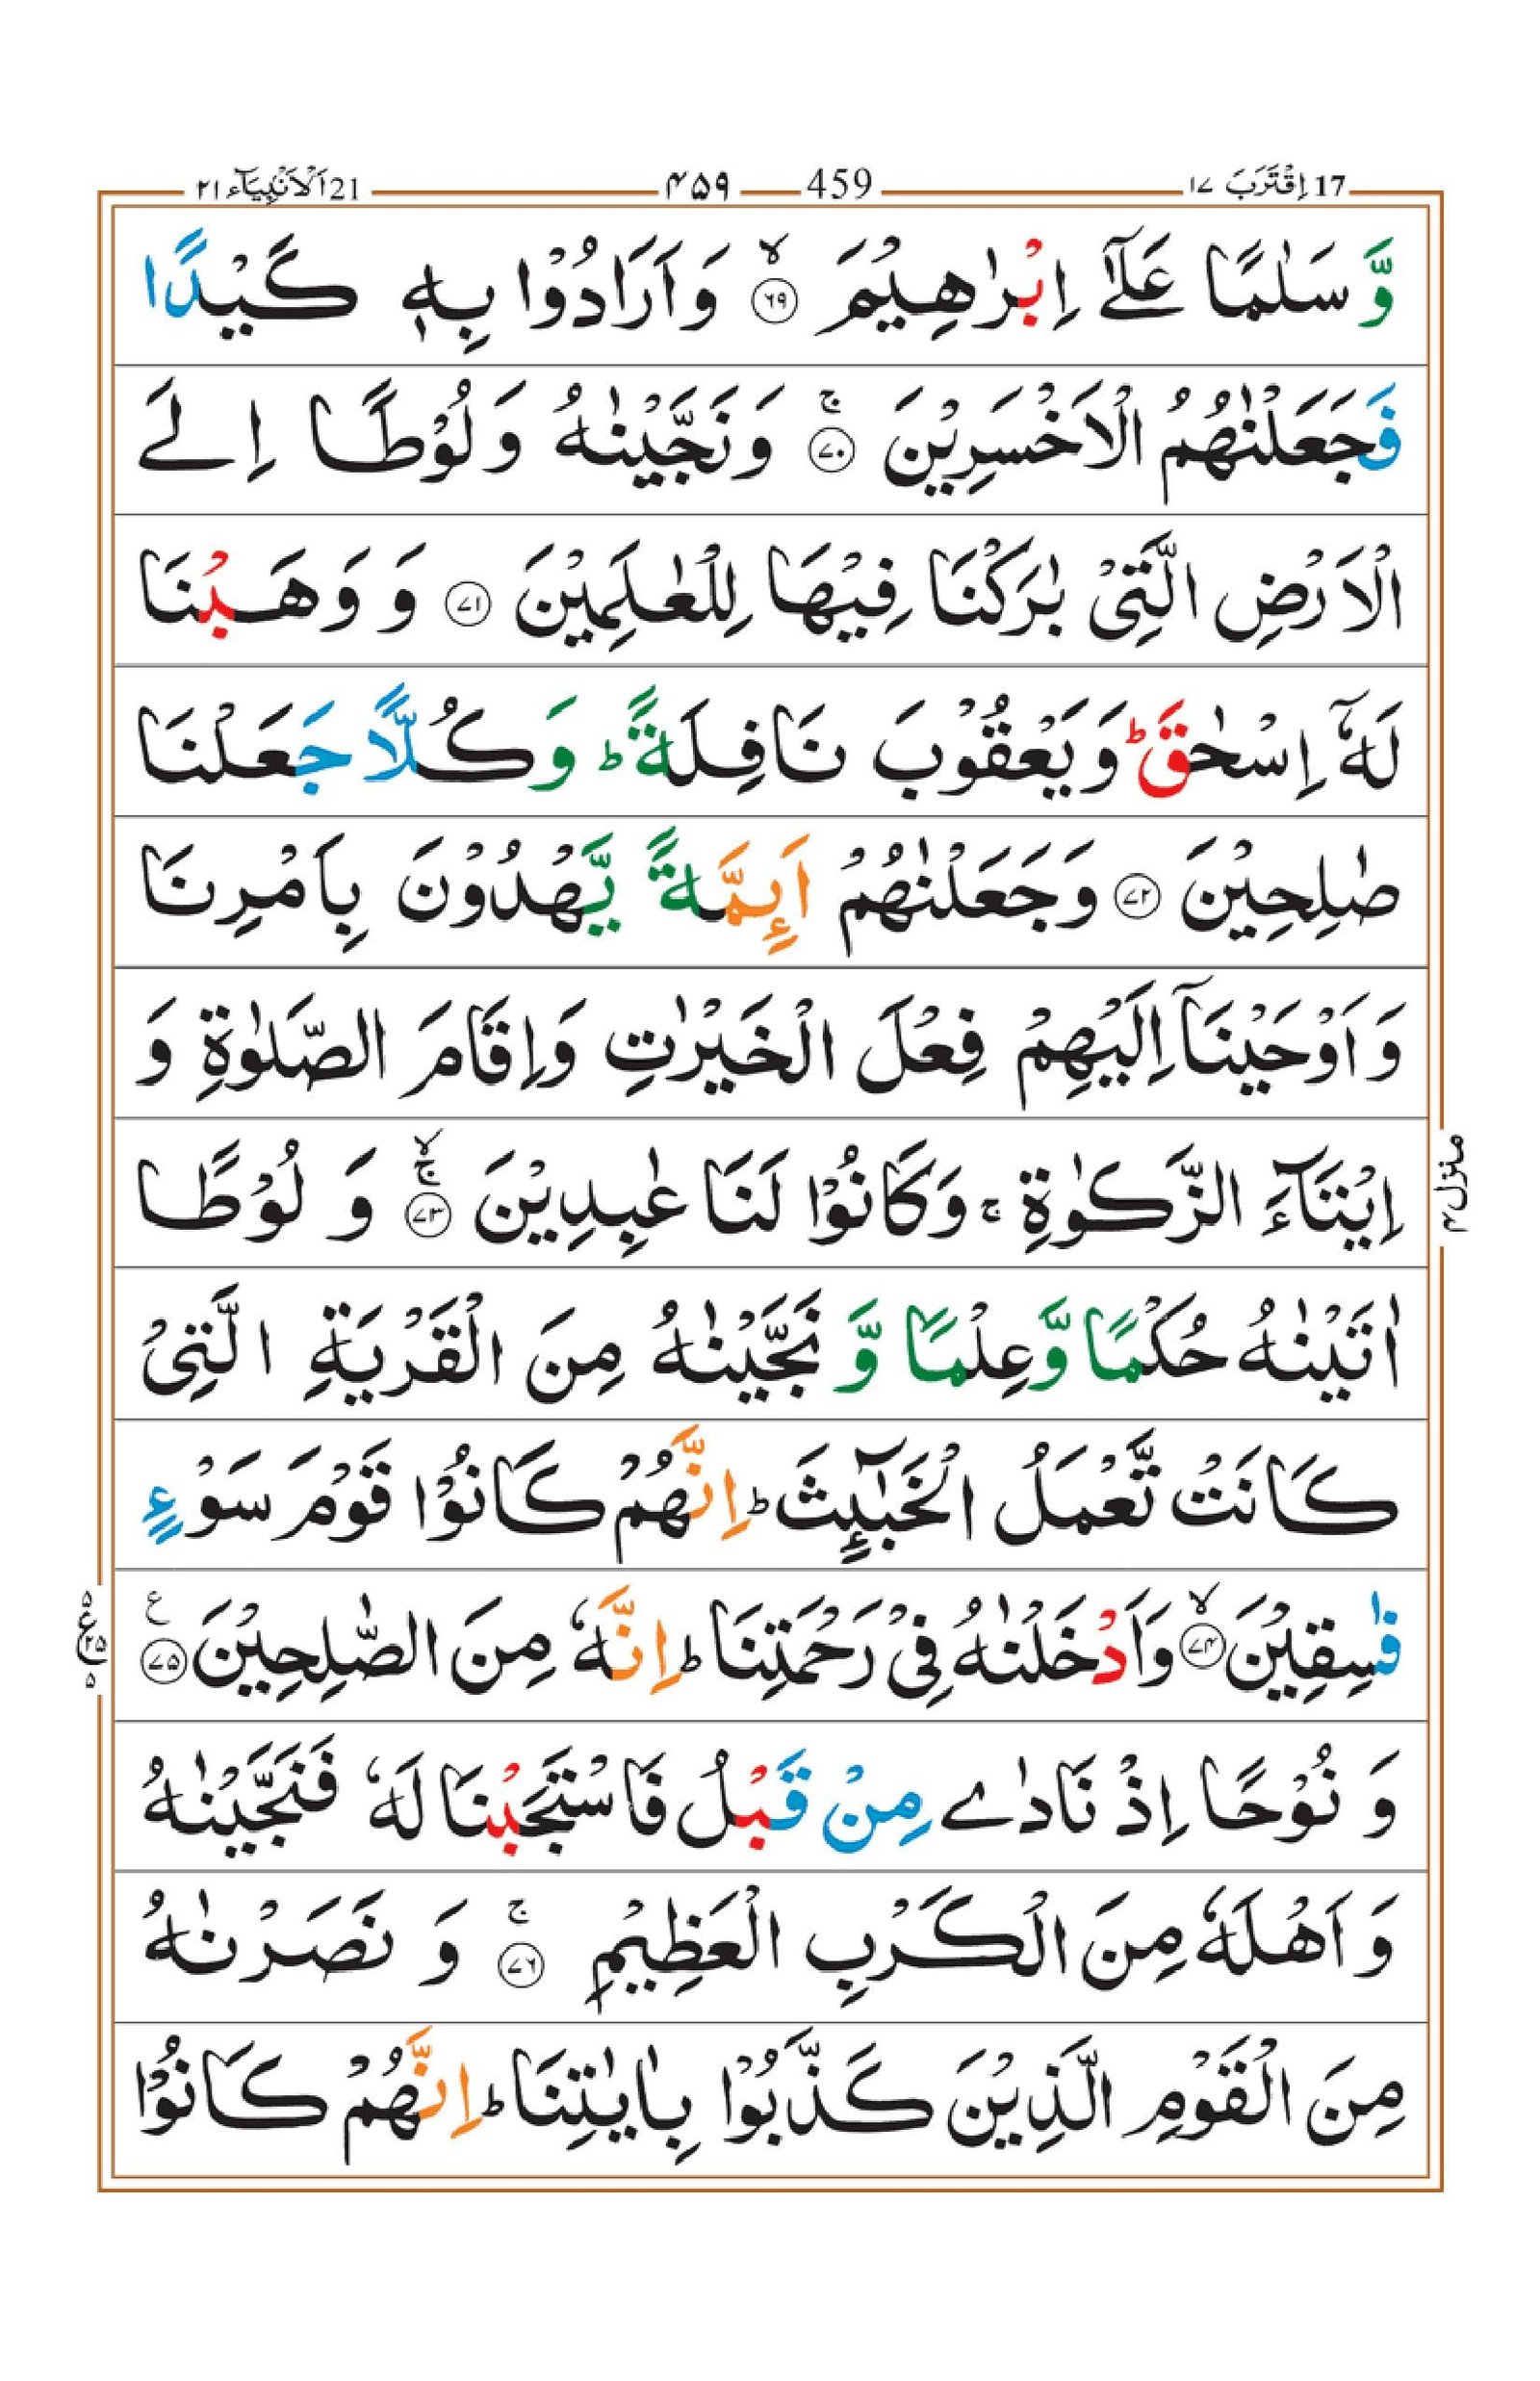 17 اِقْتَرَبَ ١٧ 459 ۴۵۹ 21 اَلْاَنْۢبِيَآء ٢١
وَّ سَلٰمًا عَلٰٓى اِبْرٰهِيْمَ ۙ‏﴿۶۹﴾ وَ اَرَادُوْا بِهٖ كَيْدًا
فَجَعَلْنٰهُمُ الْاَخْسَرِيْنَ ۚ‏﴿۷۰﴾ وَ نَجَّيْنٰهُ وَ لُوْطًا اِلَى
الْاَرْضِ الَّتِىْ بٰرَكْنَا فِيْهَا لِلْعٰلَمِيْنَ ‏﴿۷۱﴾ وَ وَهَبْنَا
لَهٗۤ اِسْحٰقَ ؕ وَ يَعْقُوْبَ نَافِلَةً ؕ وَ كُلًّا جَعَلْنَا
صٰلِحِيْنَ ‏﴿۷۲﴾ وَ جَعَلْنٰهُمْ اَئِمَّةً يَّهْدُوْنَ بِاَمْرِنَا
وَ اَوْحَيْنَاۤ اِلَيْهِمْ فِعْلَ الْخَيْرٰتِ وَ اِقَامَ الصَّلٰوةِ وَ
اِيْتَآءَ الزَّكٰوةِ ۚ وَ كَانُوْا لَنَا عٰبِدِيْنَ ۙۚ‏﴿۷۳﴾ وَ لُوْطًا
اٰتَيْنٰهُ حُكْمًا وَّ عِلْمًا وَّ نَجَّيْنٰهُ مِنَ الْقَرْيَةِ الَّتِىْ
كَانَتْ تَّعْمَلُ الْخَبٰٓئِثَ ؕ اِنَّهُمْ كَانُوْا قَوْمَ سَوْءٍ
فٰسِقِيْنَ ۙ‏﴿۷۴﴾ وَ اَدْخَلْنٰهُ فِىْ رَحْمَتِنَا ؕ اِنَّهٗ مِنَ الصّٰلِحِيْنَ ‏﴿۷۵﴾ ع
وَ نُوْحًا اِذْ نَادٰى مِنْ قَبْلُ فَاسْتَجَبْنَا لَهٗ فَنَجَّيْنٰهُ
وَ اَهْلَهٗ مِنَ الْكَرْبِ الْعَظِيْمِ ۚ‏﴿۷۶﴾ وَ نَصَرْنٰهُ
مِنَ الْقَوْمِ الَّذِيْنَ كَذَّبُوْا بِاٰيٰتِنَا ؕ اِنَّهُمْ كَانُوْا
منزل۴
۵ ع ۲۵ ۵